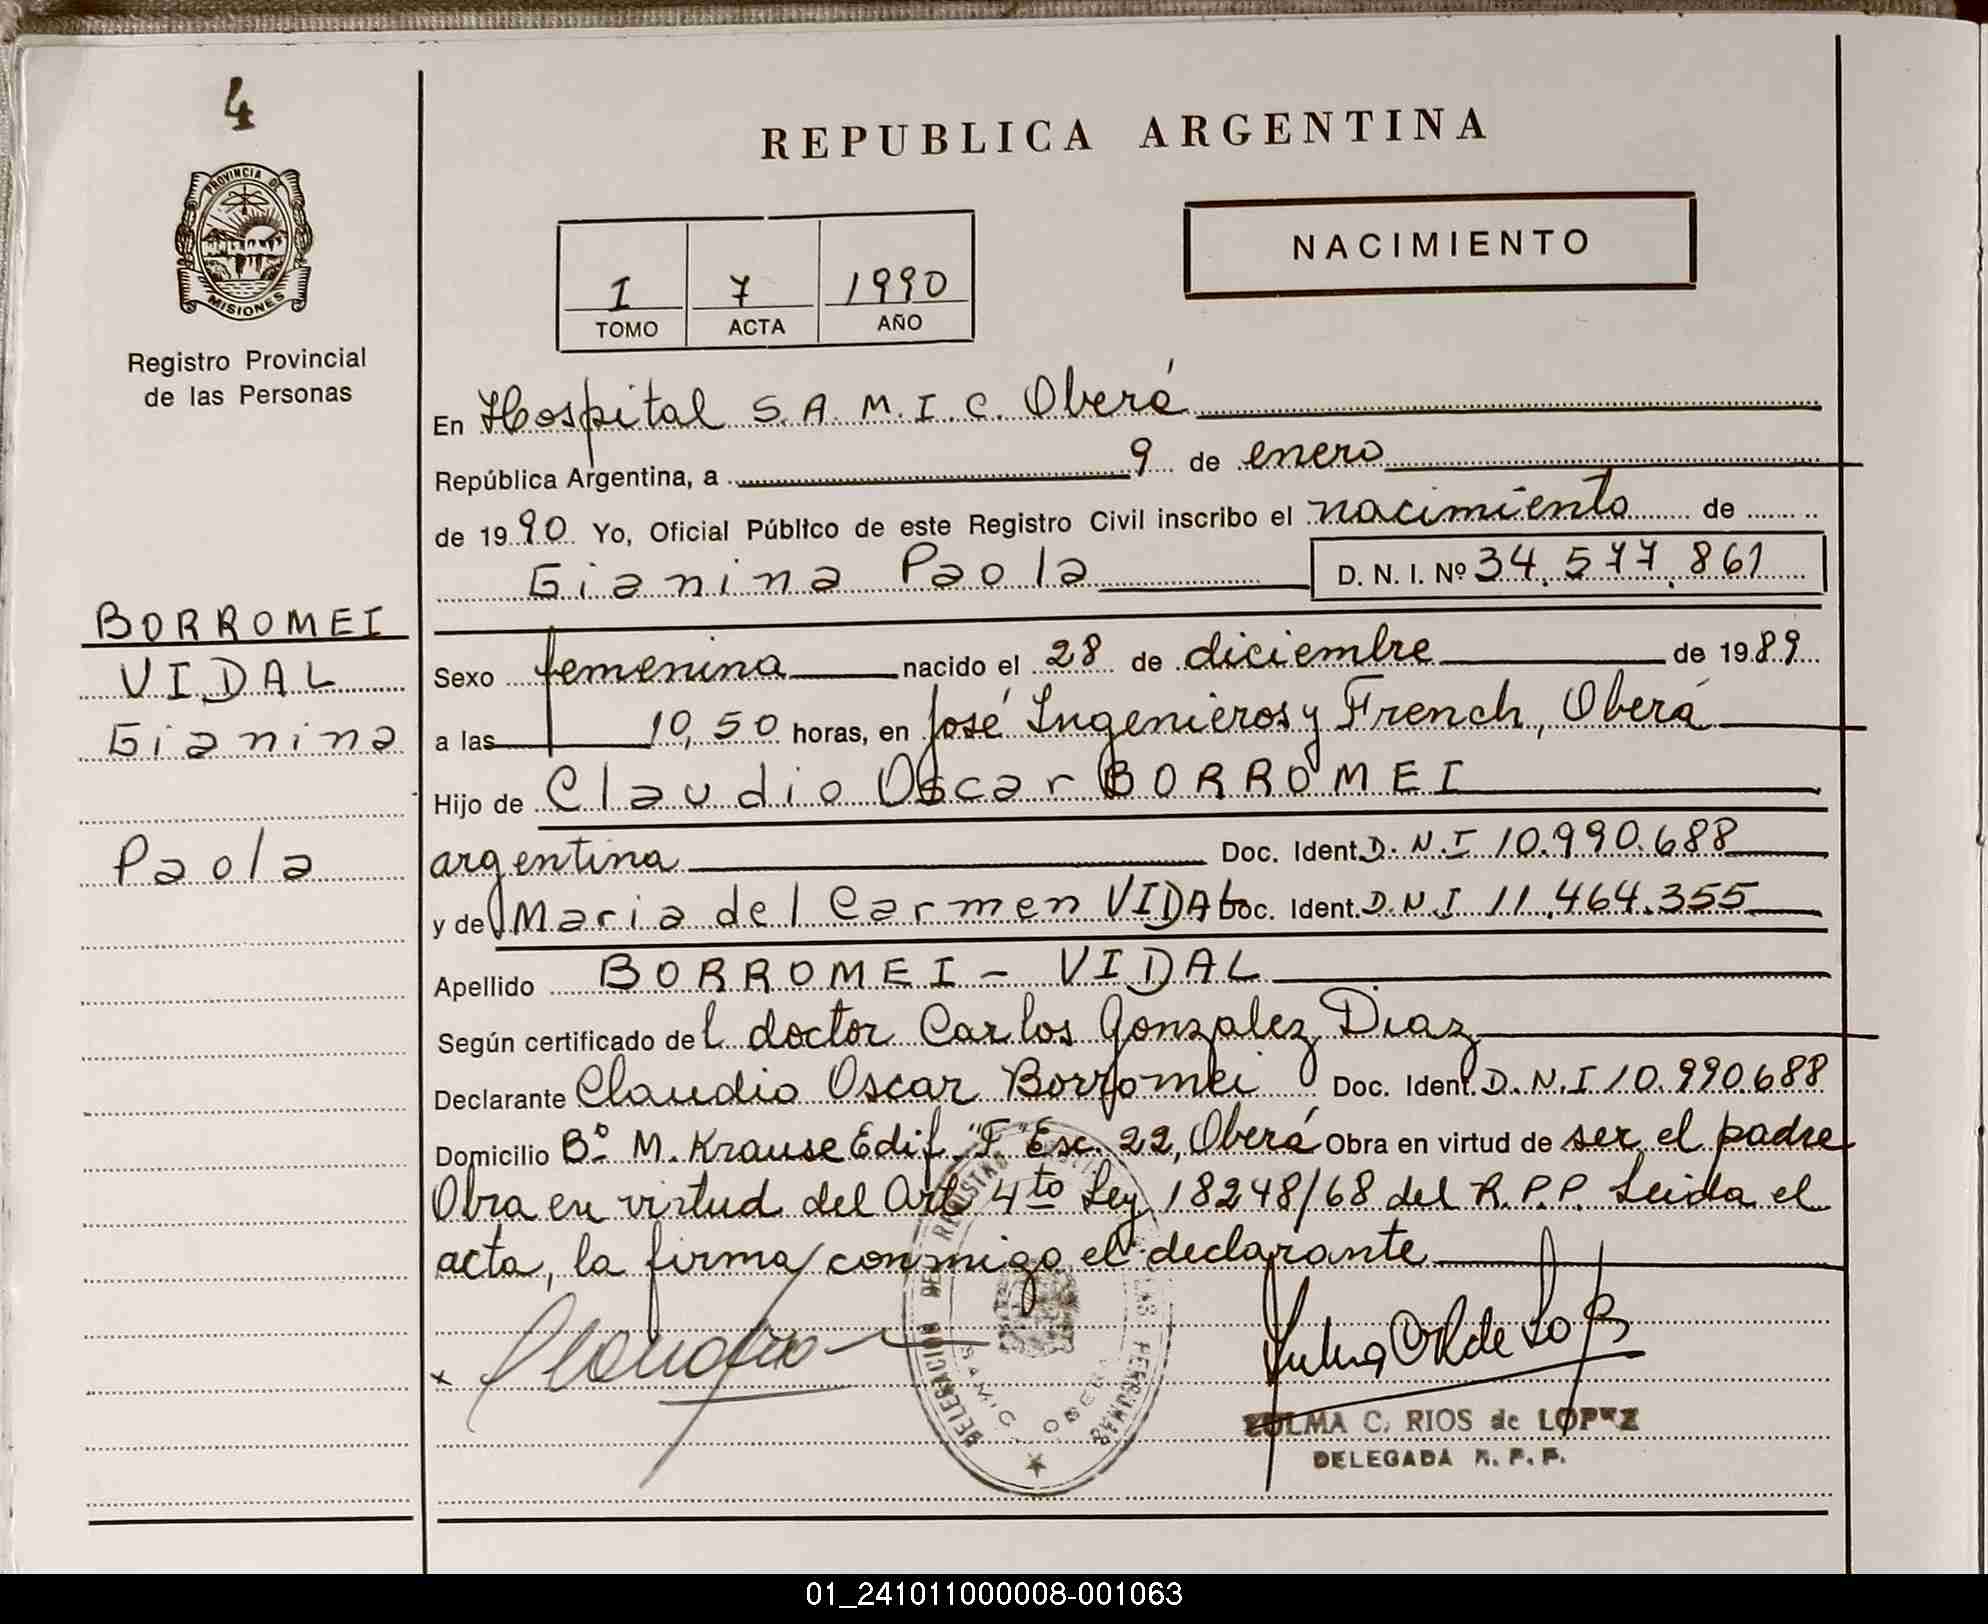 4
PROVINCIA DE
MISIONES
Registro Provincial
de las Personas
REPUBLICA ARGENTINA
NACIMIENTO
I 7 1990
TOMO ACTA AÑO
En Hospital S.A.M.I.C. Oberá
República Argentina, a 9 de enero
de 1990 Yo, Oficial Público de este Registro Civil inscribo el nacimiento de
Gianina Paola D. N. I. Nº 34.577.861
BORROMEI
VIDAL
Gianina
Paola
Sexo femenina nacido el 28 de diciembre de 1989
a las 10,50 horas, en José Ingenieros y French, Oberá
Hijo de Claudio Oscar BORROMEI
argentina Doc. Ident. D.N.I 10.990.688
y de Maria del Carmen VIDAL Doc. Ident. D.N.I 11.464.355
Apellido BORROMEI - VIDAL
Según certificado del doctor Carlos Gonzalez Diaz
Declarante Claudio Oscar Borromei Doc. Ident. D.N.I 10.990.688
Domicilio Bº M. Krause Edif. "F" Esc. 22, Oberá Obra en virtud de ser el padre
Obra en virtud del Art 4to Ley 18248/68 del R.P.P. Leida el
acta, la firma conmigo el declarante
DELEGACION DEL REGISTRO LAS PERSONAS
SAMIC OBERA
x
ZULMA C. RIOS de LOPEZ
DELEGADA R. P. P.
01_241011000008-001063